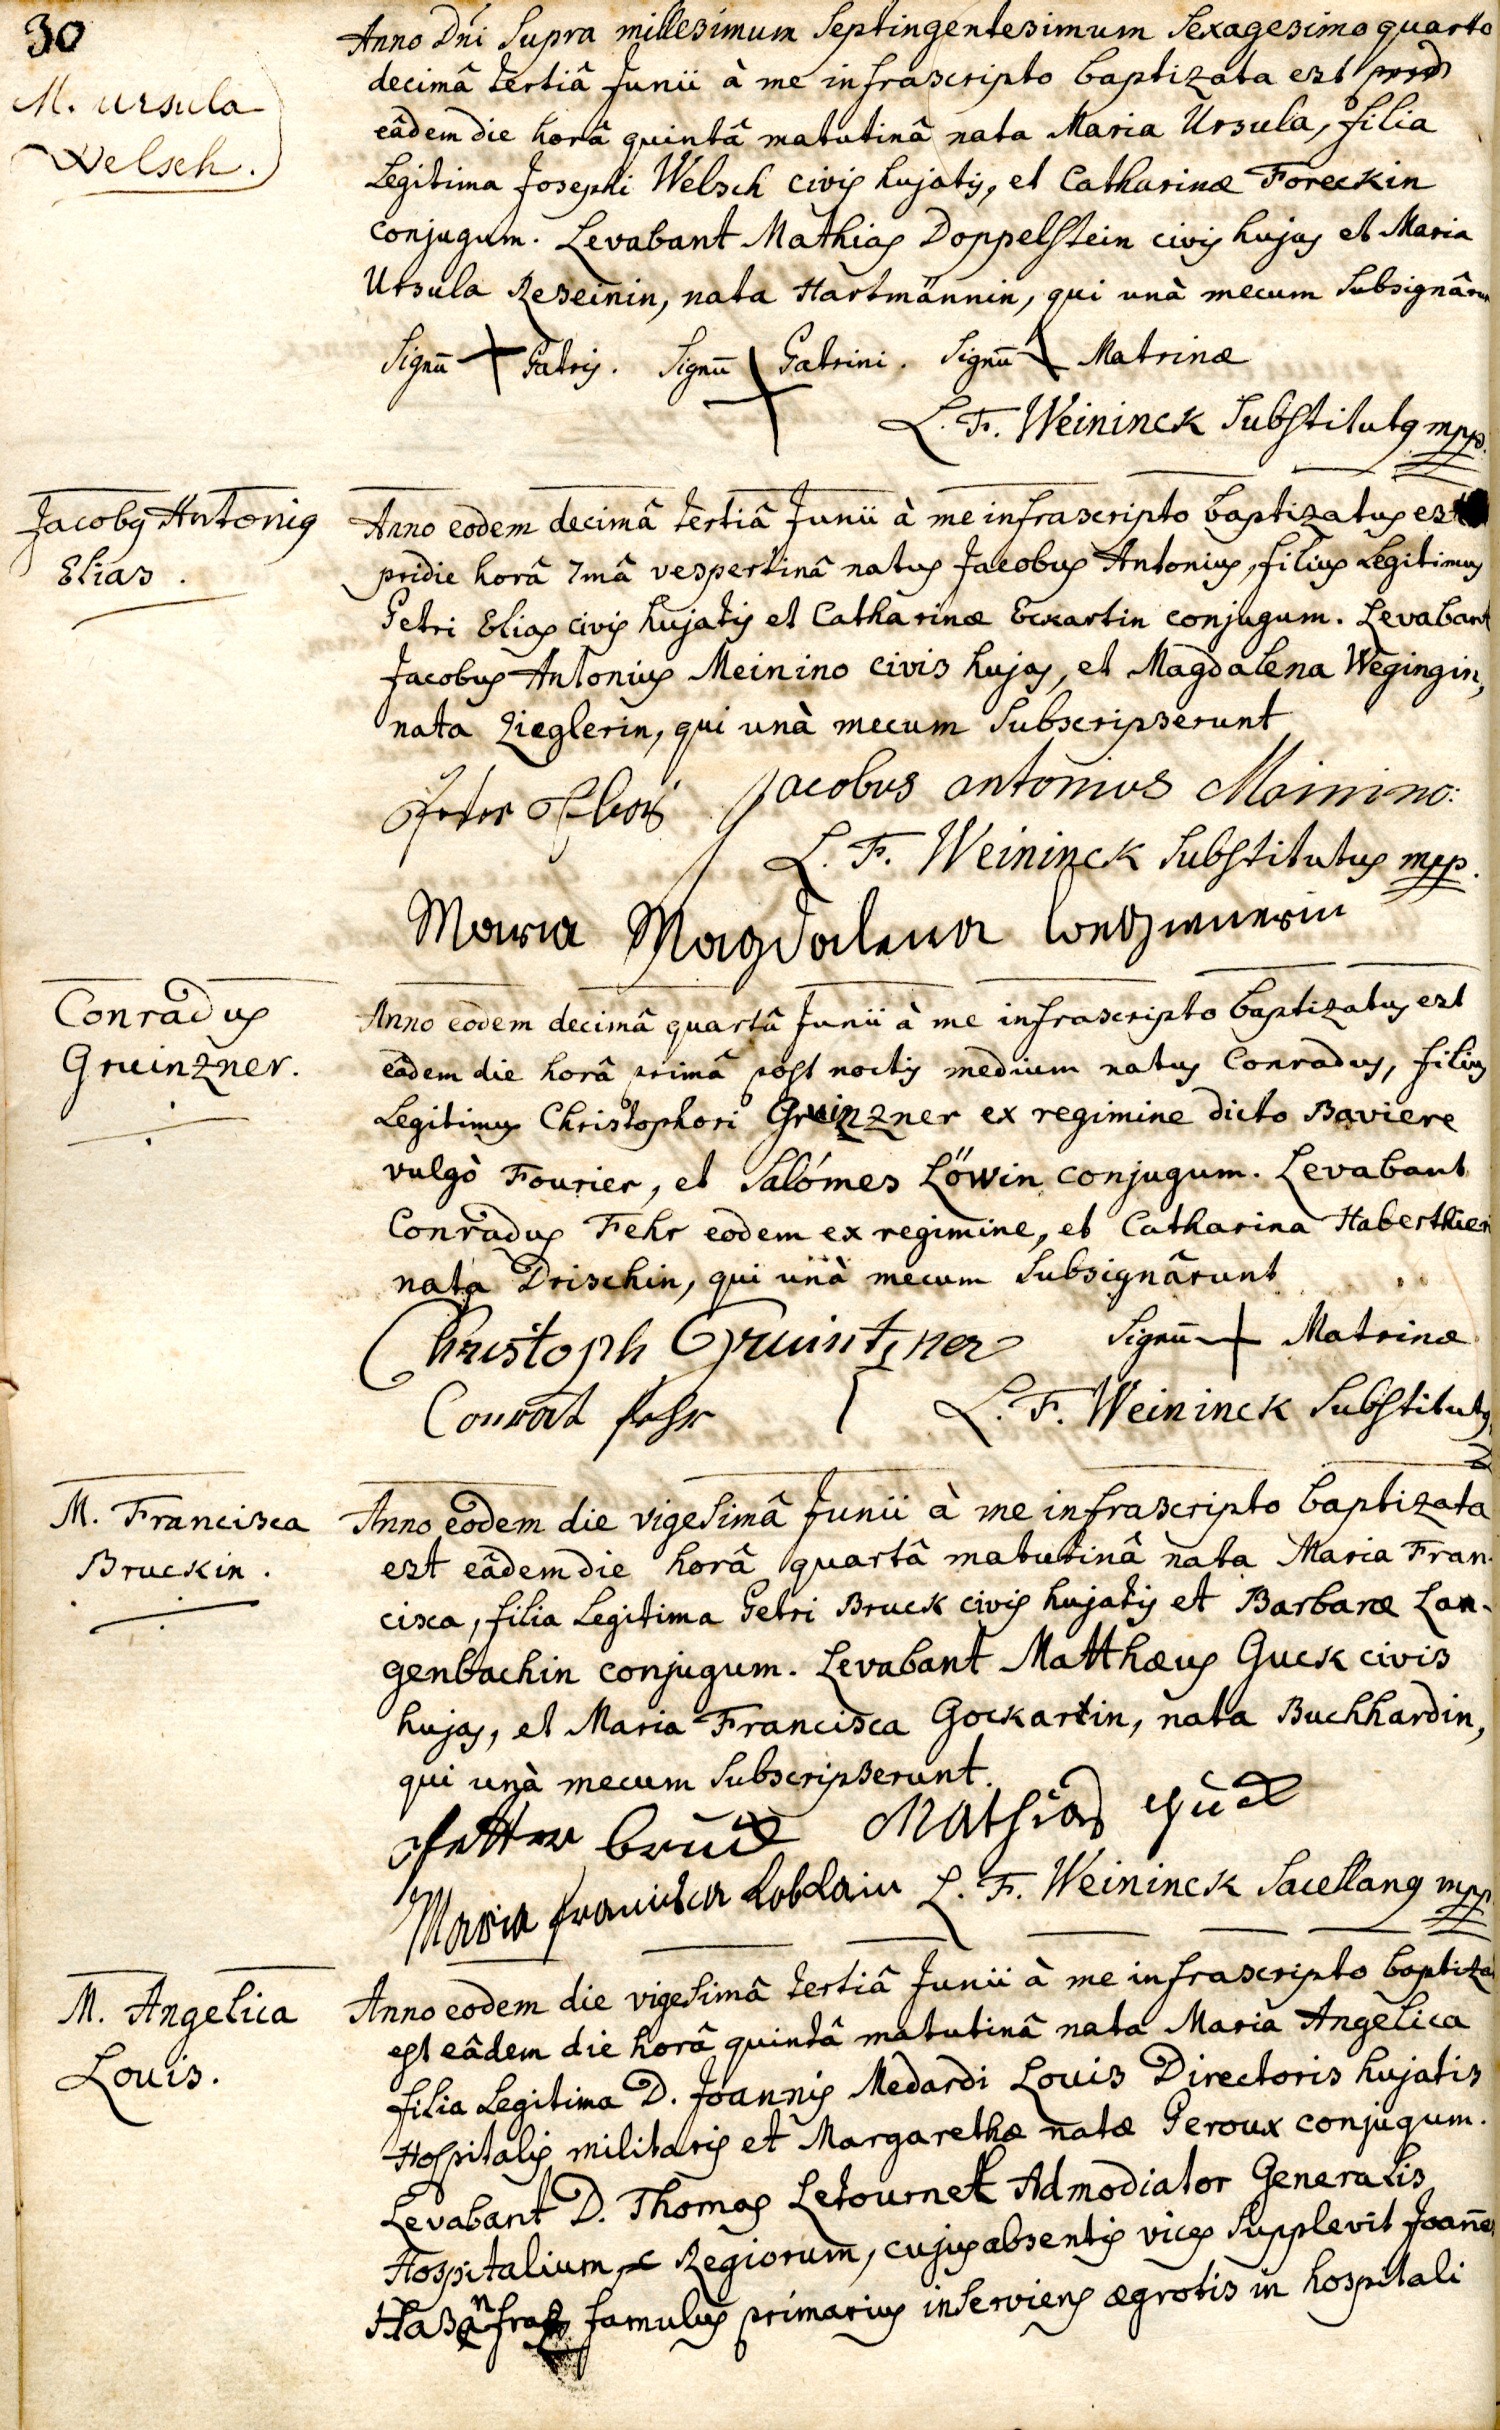 30
M. Ursula
Welsch.
Anno Dńi supra millesimum septingentesimum sexagesimo quarto
decimâ tertiâ Junii à me infrascripto baptizata est
eâdem die horâ quintâ matutinâ nata Maria Ursula, filia
legitima Josephi Welsch civis hujatis, et Catharinæ Foreckin
conjugum. Levabant Mathias Doppelstein civis hujas et Maria
Ursula Reseinin, nata Hartmännin, qui unà mecum subsignâru
Signū Patris. Signū Patrini. Signū Matrinæ
L. F. Weininck Substitutq mpp.
Jacobq Antoniq
Elias.
Anno eodem decimâ tertiâ Junii à me infrascripto baptizatus est
pridie horâ 7mâ vespertinâ natus Jacobus Antonius, filius legitimus
Petri Elias civis hujatis et Catharinæ Eckartin conjugum. Levabant
Jacobus Antonius Meinino civis hujas, et Magdalena Wegingin,
nata Zieglerin, qui unà mecum subscripserunt
Peter Elias Jacobus antonius Mainino:
L. F. Weininck Substitutus mpp.
Maria Magdalena
Conradus
Gruinzner.
Anno eodem decimâ quartâ Junii à me infrascripto baptizatus est
eâdem die horâ primâ post noctis medium natus Conradus, filius
legitimus Christophori Gruinzner ex regimine dicto Baviere
vulgò Fourier, et Salómes Löwin conjugum. Levabant
Conradus Fehr eodem ex regimine, et Catharina Haberthier
nata Drischin, qui unà mecum subsignârunt
Christoph Gruintzner Signū Matrinæ
Conrat fehr L. F. Weininck Substitutq
M. Francisca
Bruckin.
Anno eodem die vigesimâ Junii à me infrascripto baptizata
est eâdem die horâ quartâ matutinâ nata Maria Fran-
cisca, filia legitima Petri Bruck civis hujatis et Barbaræ Lan-
genbachin conjugum. Levabant Matthæus Guck civis
hujas, et Maria Francisca Gockartin, nata Buchhardin,
qui unà mecum subscripserunt.
Petter bruck Mathias guck
Maria francisca L. F. Weininck Sacellanq mpp
M. Angelica
Louis.
Anno eodem die vigesimâ tertiâ Junii à me infrascripto baptiza
est eâdem die horâ quintâ matutinâ nata Maria Angelica
filia legitima D. Joannis Medardi Louis Directoris hujatis
Hospitalis militaris et Margarethæ natæ Peroux conjugum.
Levabant D. Thomas Letournet Admodiator Generalis
Hospitalium Regiorum, cujus absentis vices supplevit Joañes
famulus primarius inserviens ægrotis in hospitali